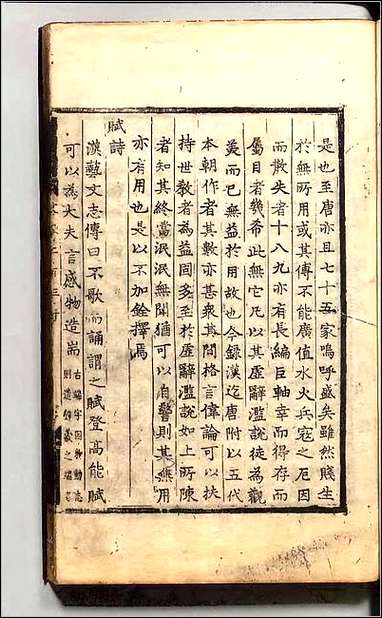 是也至唐亦且七十五家嗚呼盛矣雖然賤生
於無所用或其傳不能廣值水火兵寇之厄因
而散失者十八九亦有長編巨軸幸而得存而
屬目者幾希此無它凡以其虛辭濫說徒為觀
美而已無益於用故也今錄漢迄唐附以五代
本朝作者其數亦甚衆其閒格言偉論可以扶
持世教者為益固多至於虛辭濫說如上所陳
者知其終當泯泯無聞猶可以自警則其無用
亦有用也是以不加銓擇焉
賦詩
漢藝文志傳曰不歌而誦謂之賦登高能賦
可以為大夫言感物造耑
古端字因物動志
則造辭義之端緒